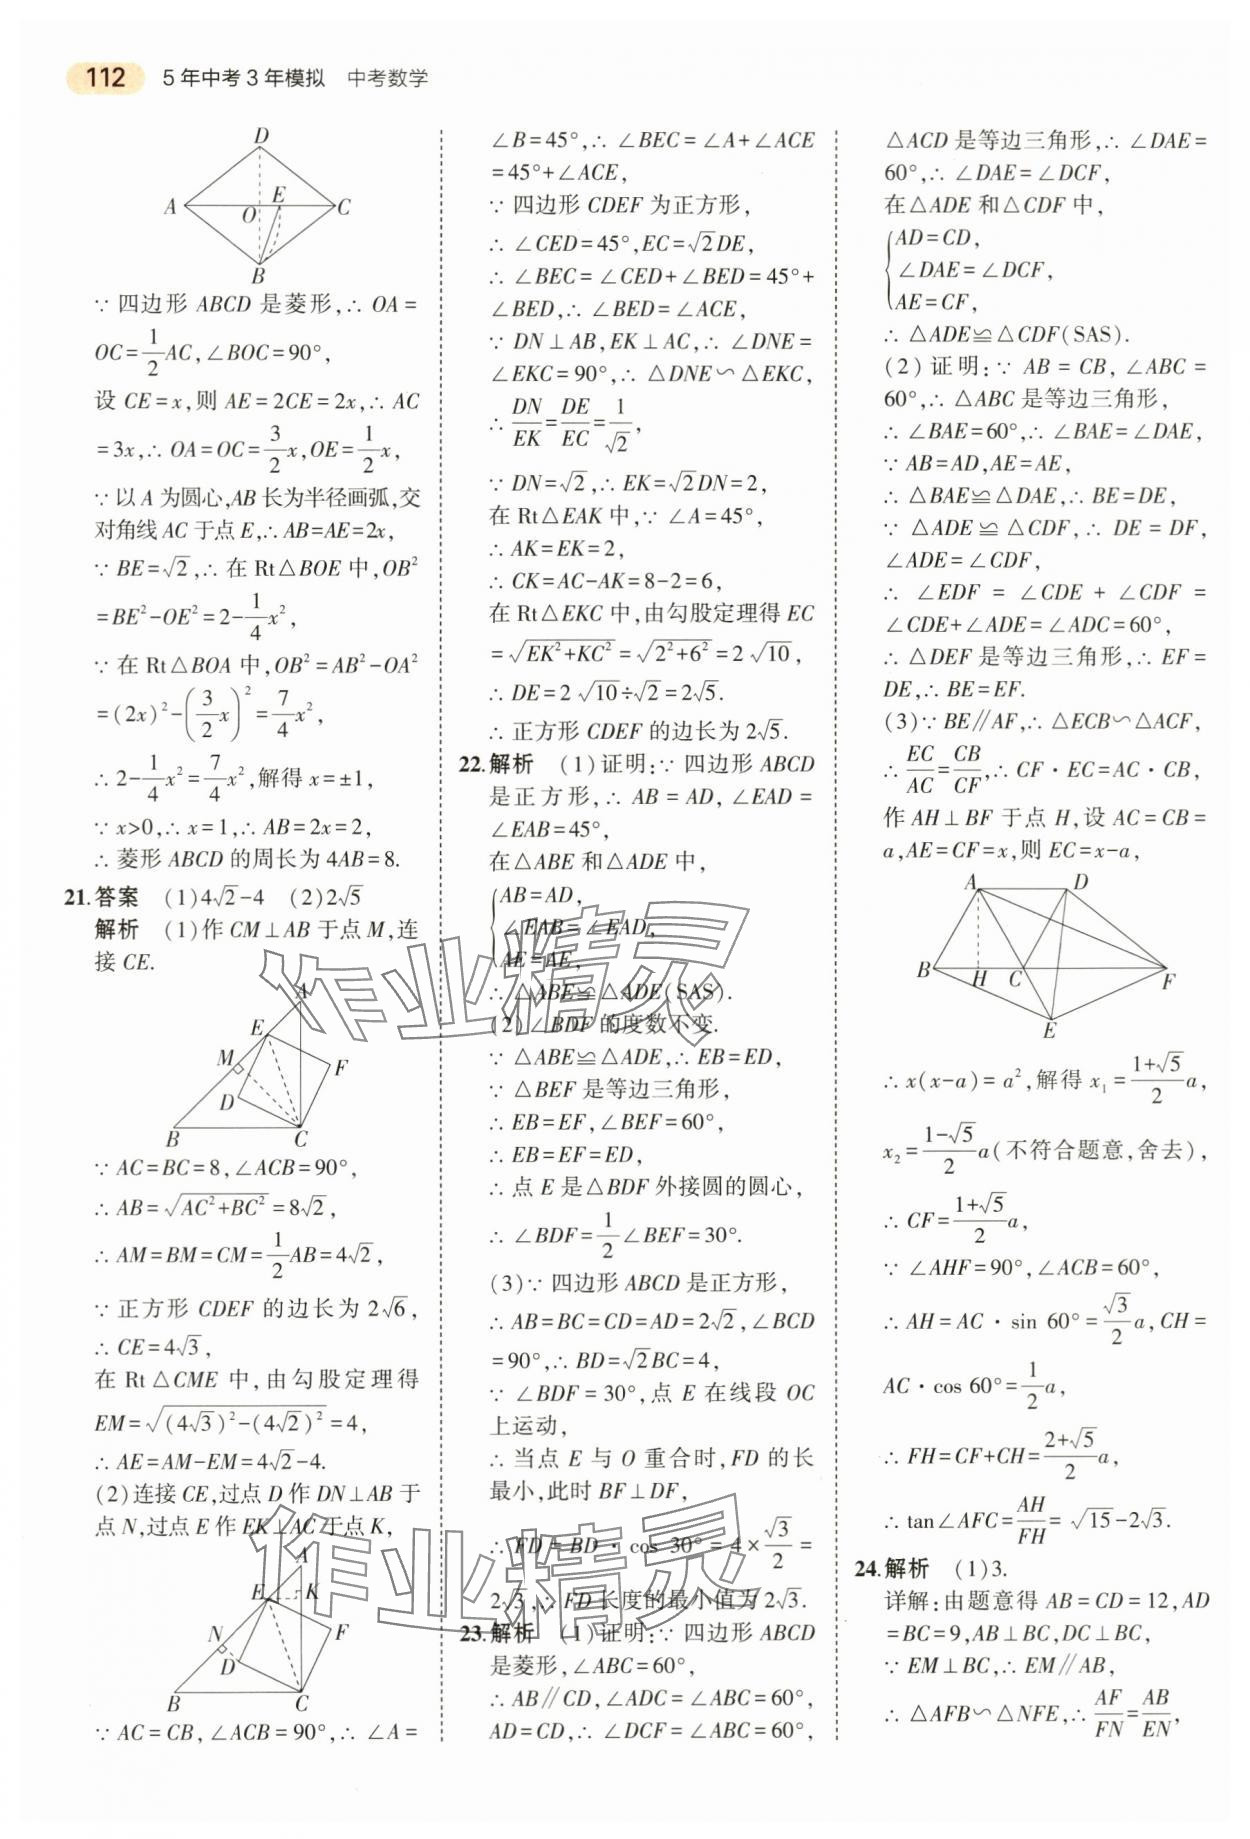 112 5年中考3年模拟 中考数学
D
A O E C
B
∵ 四边形 ABCD 是菱形,∴ OA=
OC=1/2AC,∠BOC=90°,
设 CE=x,则 AE=2CE=2x,∴ AC
=3x,∴ OA=OC=3/2x,OE=1/2x,
∵ 以 A 为圆心,AB 长为半径画弧,交
对角线 AC 于点 E,∴ AB=AE=2x,
∵ BE=√2,∴ 在 Rt△BOE 中,OB²
=BE²-OE²=2-1/4x²,
∵ 在 Rt△BOA 中,OB²=AB²-OA²
=(2x)²-(3/2x)²=7/4x²,
∴ 2-1/4x²=7/4x²,解得 x=±1,
∵ x>0,∴ x=1,∴ AB=2x=2,
∴ 菱形 ABCD 的周长为 4AB=8.
21.答案 (1)4√2-4 (2)2√5
解析 (1)作 CM⊥AB 于点 M,连
接 CE.
A
E
M F
D
B C
∵ AC=BC=8,∠ACB=90°,
∴ AB=√(AC²+BC²)=8√2,
∴ AM=BM=CM=1/2AB=4√2,
∵ 正方形 CDEF 的边长为 2√6,
∴ CE=4√3,
在 Rt△CME 中,由勾股定理得
EM=√((4√3)²-(4√2)²)=4,
∴ AE=AM-EM=4√2-4.
(2)连接 CE,过点 D 作 DN⊥AB 于
点 N,过点 E 作 EK⊥AC 于点 K,
A
E K
N F
D
B C
∵ AC=CB,∠ACB=90°,∴ ∠A=
∠B=45°,∴ ∠BEC=∠A+∠ACE
=45°+∠ACE,
∵ 四边形 CDEF 为正方形,
∴ ∠CED=45°,EC=√2DE,
∴ ∠BEC=∠CED+∠BED=45°+
∠BED,∴ ∠BED=∠ACE,
∵ DN⊥AB,EK⊥AC,∴ ∠DNE=
∠EKC=90°,∴ △DNE∽△EKC,
∴ DN/EK=DE/EC=1/√2,
∵ DN=√2,∴ EK=√2DN=2,
在 Rt△EAK 中,∵ ∠A=45°,
∴ AK=EK=2,
∴ CK=AC-AK=8-2=6,
在 Rt△EKC 中,由勾股定理得 EC
=√(EK²+KC²)=√(2²+6²)=2√10,
∴ DE=2√10÷√2=2√5.
∴ 正方形 CDEF 的边长为 2√5.
22.解析 (1)证明:∵ 四边形 ABCD
是正方形,∴ AB=AD,∠EAD=
∠EAB=45°,
在△ABE 和△ADE 中,
AB=AD,
∠EAB=∠EAD,
AE=AE,
∴ △ABE≌△ADE(SAS).
(2)∠BDF 的度数不变.
∵ △ABE≌△ADE,∴ EB=ED,
∵ △BEF 是等边三角形,
∴ EB=EF,∠BEF=60°,
∴ EB=EF=ED,
∴ 点 E 是△BDF 外接圆的圆心,
∴ ∠BDF=1/2∠BEF=30°.
(3)∵ 四边形 ABCD 是正方形,
∴ AB=BC=CD=AD=2√2,∠BCD
=90°,∴ BD=√2BC=4,
∵ ∠BDF=30°,点 E 在线段 OC
上运动,
∴ 当点 E 与 O 重合时,FD 的长
最小,此时 BF⊥DF,
∴ FD=BD·cos 30°=4×√3/2=
2√3,∴ FD 长度的最小值为 2√3.
23.解析 (1)证明:∵ 四边形 ABCD
是菱形,∠ABC=60°,
∴ AB∥CD,∠ADC=∠ABC=60°,
AD=CD,∴ ∠DCF=∠ABC=60°,
△ACD 是等边三角形,∴ ∠DAE=
60°,∴ ∠DAE=∠DCF,
在△ADE 和△CDF 中,
AD=CD,
∠DAE=∠DCF,
AE=CF,
∴ △ADE≌△CDF(SAS).
(2)证明:∵ AB=CB,∠ABC=
60°,∴ △ABC 是等边三角形,
∴ ∠BAE=60°,∴ ∠BAE=∠DAE,
∵ AB=AD,AE=AE,
∴ △BAE≌△DAE,∴ BE=DE,
∵ △ADE≌△CDF,∴ DE=DF,
∠ADE=∠CDF,
∴ ∠EDF=∠CDE+∠CDF=
∠CDE+∠ADE=∠ADC=60°,
∴ △DEF 是等边三角形,∴ EF=
DE,∴ BE=EF.
(3)∵ BE∥AF,∴ △ECB∽△ACF,
∴ EC/AC=CB/CF,∴ CF·EC=AC·CB,
作 AH⊥BF 于点 H,设 AC=CB=
a,AE=CF=x,则 EC=x-a,
A D
B H C F
E
∴ x(x-a)=a²,解得 x₁=(1+√5)/2a,
x₂=(1-√5)/2a(不符合题意,舍去),
∴ CF=(1+√5)/2a,
∵ ∠AHF=90°,∠ACB=60°,
∴ AH=AC·sin 60°=√3/2a,CH=
AC·cos 60°=1/2a,
∴ FH=CF+CH=(2+√5)/2a,
∴ tan∠AFC=AH/FH=√15-2√3.
24.解析 (1)3.
详解:由题意得 AB=CD=12,AD
=BC=9,AB⊥BC,DC⊥BC,
∵ EM⊥BC,∴ EM∥AB,
∴ △AFB∽△NFE,∴ AF/FN=AB/EN,
作业精灵
作业精灵